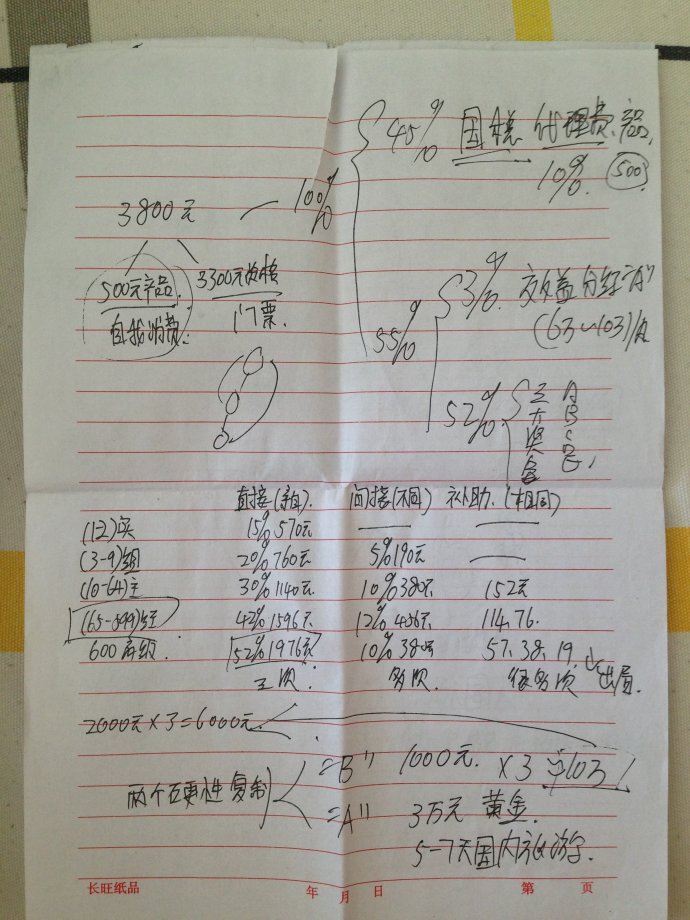 45% 国税 代理费
10%. 500
3800元 — 100%
500元产品 3300元资格
自我消费. 门票.
55%
3%. 效益分红"A"
(63~103)/月
52% 五大奖金 A B C D E
直接(亲自). 间接(不同) 补助. (相同)
(1-2)实 15% 570元
(3-9)组 20% 760元 5% 190元
(10-64)主 30% 1140元 10% 380元 152元
(65-599)经 42% 1596元 12% 456元 114.76.
600高级. 52% 1976元 10% 380元 57.38.19.
三次. 多次. 很多次 出局.
2000元×3=6000元.
两个 复制
=B" 1000元. ×3
=A" 3万元 黄金.
5-7天国内旅游.
长旺纸品 年 月 日 第 页